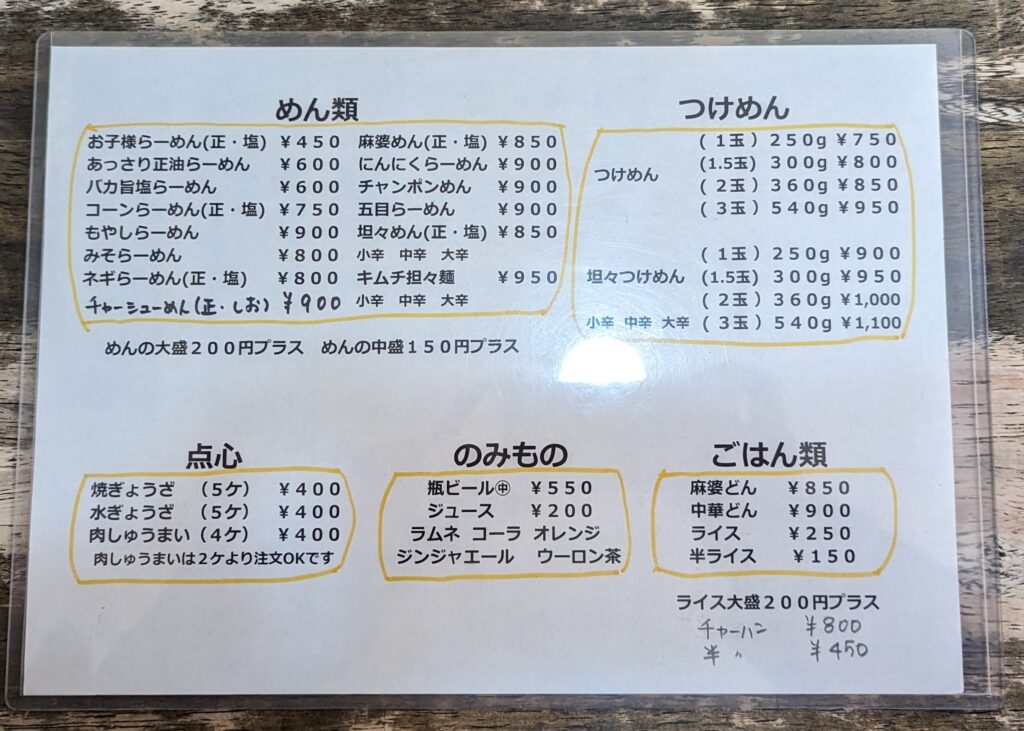 めん類
お子様らーめん(正・塩) ￥４５０
あっさり正油らーめん ￥６００
バカ旨塩らーめん ￥６００
コーンらーめん(正・塩) ￥７５０
もやしらーめん ￥９００
みそらーめん ￥８００
ネギらーめん(正・塩) ￥８００
チャーシューめん(正・しお) ￥900
麻婆めん(正・塩) ￥８５０
にんにくらーめん ￥９００
チャンポンめん ￥９００
五目らーめん ￥９００
坦々めん(正・塩) ￥８５０
小辛 中辛 大辛
キムチ担々麺 ￥９５０
小辛 中辛 大辛
めんの大盛２００円プラス めんの中盛１５０円プラス
つけめん
つけめん
( 1玉 ) 2 5 0 g ￥７５０
(1.5玉) 3 0 0 g ￥８００
( 2玉 ) 3 6 0 g ￥８５０
( 3玉 ) 5 4 0 g ￥９５０
坦々つけめん
小辛 中辛 大辛
( 1玉 ) 2 5 0 g ￥９００
(1.5玉) 3 0 0 g ￥９５０
( 2玉 ) 3 6 0 g ￥1,000
( 3玉 ) 5 4 0 g ￥1,100
点心
焼ぎょうざ （５ケ） ￥４００
水ぎょうざ （５ケ） ￥４００
肉しゅうまい（４ケ） ￥４００
肉しゅうまいは２ケより注文OKです
のみもの
瓶ビール㊥ ￥５５０
ジュース ￥２００
ラムネ コーラ オレンジ
ジンジャエール ウーロン茶
ごはん類
麻婆どん ￥８５０
中華どん ￥９００
ライス ￥２５０
半ライス ￥１５０
ライス大盛２００円プラス
チャーハン ￥800
半 〃 ￥450